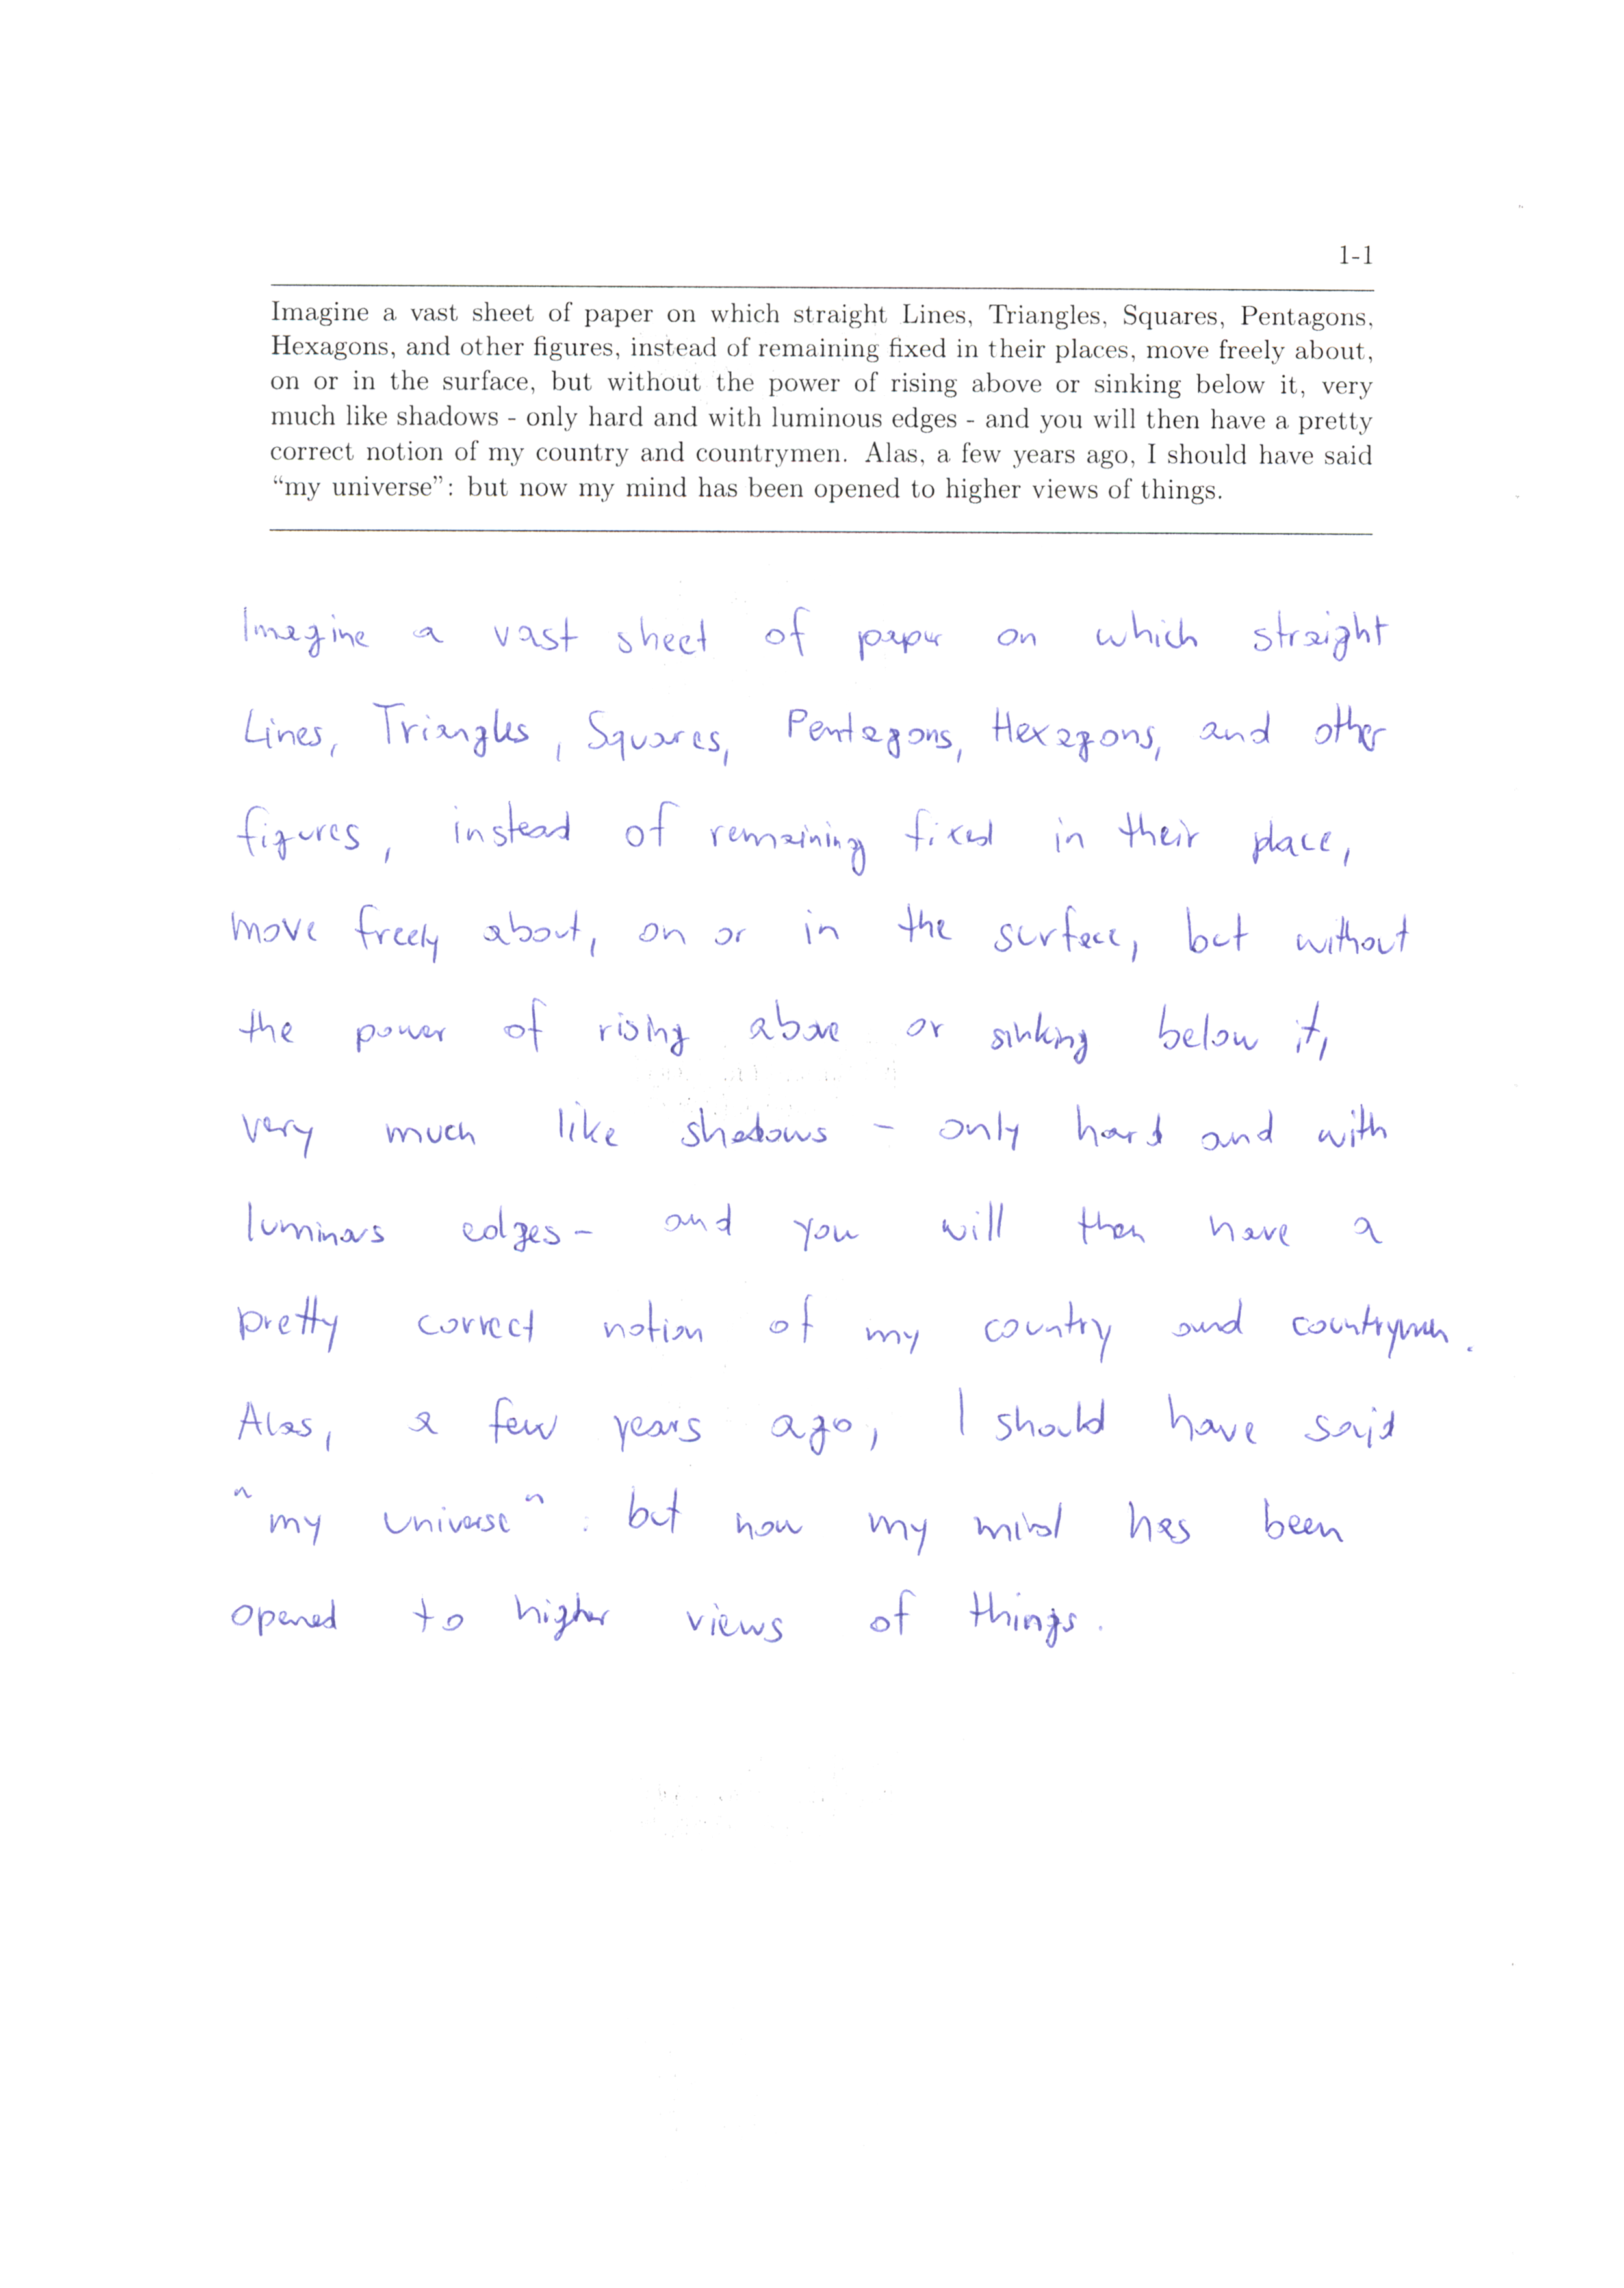 1-1
Imagine a vast sheet of paper on which straight Lines, Triangles, Squares, Pentagons,
Hexagons, and other figures, instead of remaining fixed in their places, move freely about,
on or in the surface, but without the power of rising above or sinking below it, very
much like shadows - only hard and with luminous edges - and you will then have a pretty
correct notion of my country and countrymen. Alas, a few years ago, I should have said
“my universe”: but now my mind has been opened to higher views of things.
Imagine a vast sheet of paper on which straight
Lines, Triangles, Squares, Pentagons, Hexagons, and other
figures, instead of remaining fixed in their place,
move freely about, on or in the surface, but without
the power of rising above or sinking below it,
very much like shadows - only hard and with
luminous edges - and you will then have a
pretty correct notion of my country and countrymen.
Alas, a few years ago, I should have said
"my universe": but now my mind has been
opened to higher views of things.